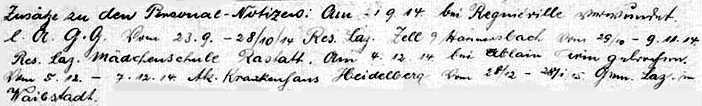 Zusätze zu den Personal-Notizen: Am 21 9. 14. bei Regniéville verwundet.
l. A. G. G. Vom 23. 9. - 28/10/14 Res. Laz. Zell a Harmersbach vom 29/10 - 9. 11. 14
Res. Laz. Mädchenschule Rastatt. Am 4. 12. 14 bei Ablain
Vom 5. 12. - 7. 12. 14 Ak. Krankenhaus Heidelberg vom 28/12 - 28/1 15 Gymn. Laz. in
Waibstadt.